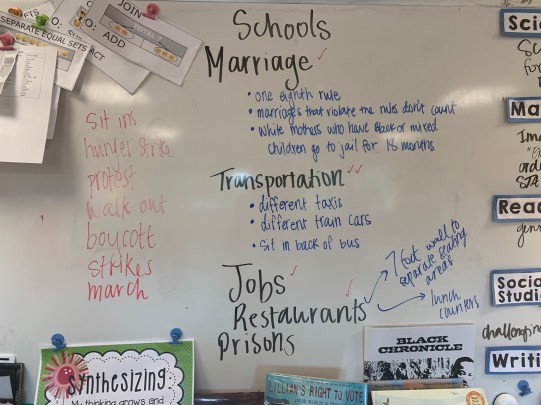 JOIN
TO: ADD
SEPARATE EQUAL SETS
TO: S
ACT
sit ins
hunger strike
protest
walk out
boycott
strikes
march
Schools
Marriage ✓
• one eighth rule
• marriages that violate the rules don't count
• white mothers who have black or mixed
children go to jail for 18 months
Transportation ✓✓
• different taxis
• different train cars
• sit in back of bus
Jobs ✓
Restaurants ✓
prisons
7 foot wall to
separate seating
areas
lunch
counters
Sci
Ma
STA
Read
Social
Studi
challenging
Writi
Synthesizing
My thinking grows and
BLACK
CHRONICLE
LILLIAN'S RIGHT TO VOTE